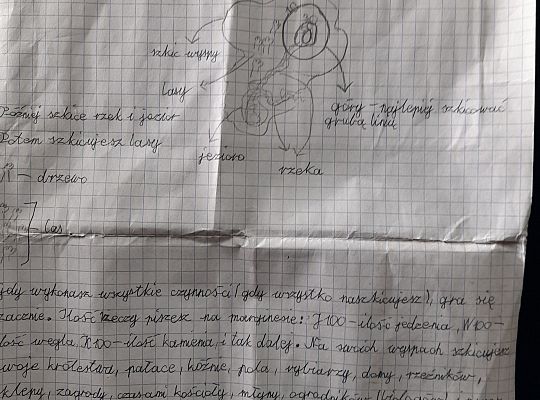 szkic wyspy
lasy
góry - najlepiej szkicować
grubą linią
Później szkice rzek i jezior
Potem szkicujesz lasy
jezioro
rzeka
- drzewo
las
gdy wykonasz wszystkie czynności (gdy wszystko naszkicujesz), gra się
zacznie. Ilość rzeczy piszesz na marginesie: J100-ilość jedzenia, W100-
ilość węgla, K100-ilość kamenia, i tak dalej. Na swoich wyspach szkicujesz
swoje królestwa, pałace, kóźnie, pola, wybrzeży, domy, rzeźników,
sklepy, zagrody, czasami kościoły, młyny, ogrodników